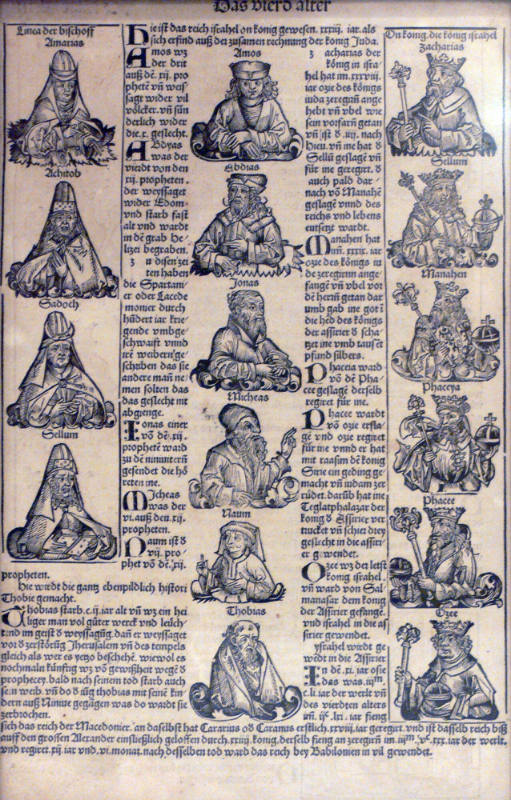 Das vierd alter
Linea der bischoff
Amarias
Achitob
Sadoch
Sellum
Hie ist das reich israhel on konig gewesen .xxiij. iar. als
sich erfind auß der zusamen rechnung der konig Juda.
Amos wz
der drit
auß dē .xij. pro
phetē vñ weis
sagt wider vil
völcker. vñ sūn
derlich wider
die .x. geslecht.
Abdyas
was der
vierdt von den
xij. propheten.
der weyssaget
wider Edom.
vnd starb fast
alt vnd wardt
in dē grab he
lizei begraben.
In disen zei
ten haben
die Spartani
er oder Lacede
monier durch
hūdert iar krie
gende vmbge
schwaift vnnd
irē weibern ge
schriben das sie
andere man ne
men solten das
das geslecht nit
abgienge.
Jonas einer
vō dē .xij.
prophetē ward
zu dē niniuitern
gesendet die hō
reten ine.
Micheas
was der
vi. auß den .xij.
propheten.
Naum ist ð
vij. pro
phet vō dē .xij.
propheten.
Amos
Abdias
Jonas
Micheas
Naum
Thobias
Zacharias der
könig in isra
hel hat im .xxxviij.
iar ozie des königs
iuda zeregirn ange
hebt vñ vbel wie
sein vorfarn getan
vñ ist ð .iiij. nach
Hieu. vñ me hat ð
Sellū geslagē vñ
für ine geregirt. ð
auch pald dar
nach vō Manahē
geslagē vnnd des
reichs vnd lebens
entsetzt wardt.
Manahen hat
im .xxxix. iar
ozie des königs iu
de zeregirnn ange
fangē vñ vbel vor
dē herrn getan dar
umb gab ine got i
die hēd des königs
der assirier ð schä
tzet ine vmb tausēt
pfund silbers.
Phaceia ward
vō dē Pha
cee geslagē derselb
regiret für ine.
Phacee wardt
vō ozie erslag
gē vnd ozie regiret
für ine vnnd er hat
mit raasim dē konig
Sirie ein geding ge
macht vñ iudam zer
rüdet. darüb hat ine
Teglatphalazar der
konig ð Assirier ver
trucket vñ schier drey
geslecht in die assirier
er gewendet.
Ozee wz der letst
konig israhel.
vñ ward von Sal
manasar dem konig
der Assirier gefange.
vnd israhel in die as
sirier gewendet.
Ysrahel wirdt ge
wēdt in die Assirier
On konig. die konig israhel
Zacharias
Sellum
Manahen
Phaceya
Phacee
Ozee
Hie wirdt die gantz ebenpildlich histori
Thobie gemacht.
Thobias starb .c.ij. iar alt vñ wz ein hei
liger man vol güter werck vnd leüch
tend im geist ð weyssagūg. dañ er weyssaget
vor ð zerstörūg Jherusalem vñ des tempels
gleich als wer es yetzo beschehē. wiewol es
nochmaln künftig wz vō gewißheit wegē ð
prophecey. bald nach seinem tod starb auch
sein weib. vñ do ð iüg thobias mit seinē kin
dern auß Niniue gegāgen was do wardt sie
zerbrochen.
sich das reich der Macedonier. an daselbst hat Cararius oð Caranus erstlich .xxviij. iar geregirt. vnd ist dasselb reich biß
auff den grossen Alexander einsließlich geloffen durch .xxiij. konig. derselb fieng an zeregirn im .iijᵐ. vᶜ. xxx. iar der werlt.
vnd regiret .xij. iar vnd .vi. monat. nach desselben tod ward das reich bey Babilonien in vil gewendet.